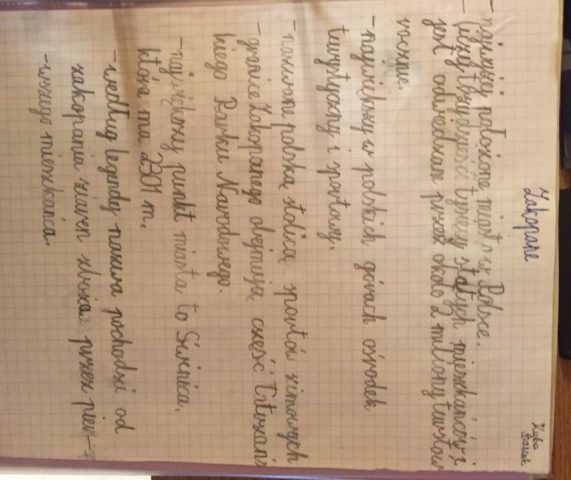 Kuba
Zakopane
- najwyżej położone miasto w Polsce.
- liczy trzydzieści tysięcy stałych mieszkańców i
jest odwiedzane przez około 2 miliony turystów
rocznie.
- największy w polskich górach ośrodek
turystyczny i sportowy.
- nazwane polską stolicą sportów zimowych
- granice Zakopanego obejmują część Tatrzańs
kiego Parku Narodowego.
- najwyższy punkt miasta to Świnica,
która ma 2301 m.
- według legendy nazwa pochodzi od
zakopania ziaren zboża przez pierw-
wszego mieszkańca.